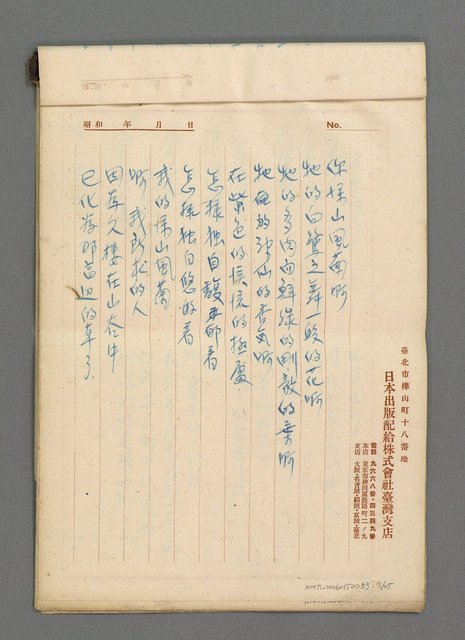 昭和 年 月 日 No.
臺北市樺山町十八番地
日本出版配給株式會社臺灣支店
電話 九六六八番・四三四九番
本店 東京市神田區淡路町二ノ九
支店 大阪・名古屋・福岡・京城・臺北
你深山風蘭啊
牠的白鷺之舞一般的花啊
牠的多肉而鮮綠的劍般的葉啊
牠 的神仙的香氣啊
在紫色的 的極處
怎樣獨自馥郁着
怎樣獨自悠游着
我的深山風蘭
啊 我所求的人
因為久棲在山谷中
已化為那 的草了.
NMTL20060150053 7/25